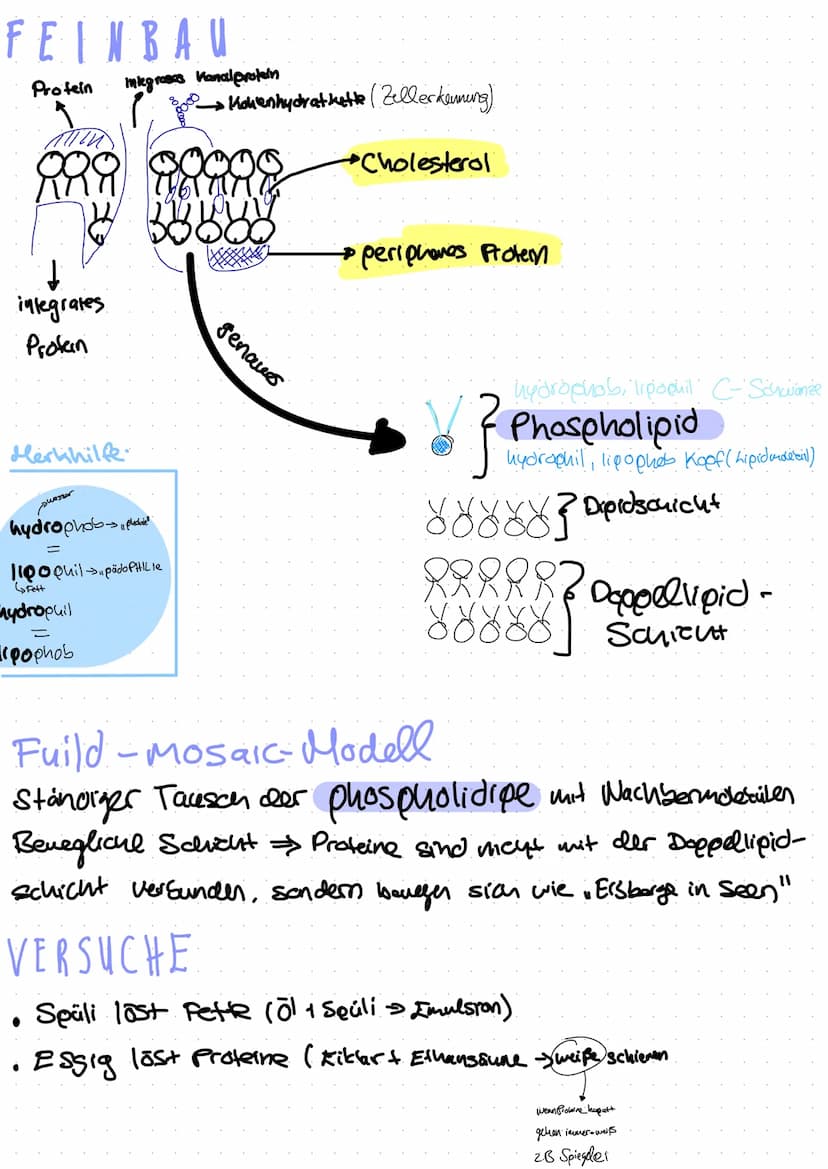 FEINBAU
Protein
integrales Kanalprotein
Kohlenhydratkette (Zellerkennung)
Cholesterol
peripheres Protein
integrales
Protein
genauer
hydrophob, lipophil C-Schwänze
Phospholipid
hydrophil, lipophob Kopf (Lipidmolekül)
Lipidschicht
Doppellipid-
Schicht
Merkhilfe:
Wasser
hydrophob → „phobie"
=
lipophil → „pädoPHILie
↳ Fett
hydrophil
=
lipophob
Fuild-mosaic-Modell
Ständiger Tausch der phospholidipe mit Nachbarmolekülen
Bewegliche Schicht ⇒ Proteine sind nicht mit der Doppellipid-
schicht verbunden, sondern bewegen sich wie „Eisberge in Seen"
VERSUCHE
• Spüli löst Fette (Öl + Spüli → Emulsion)
• Essig löst Proteine (Eiklar + Ethansäure → weiße schlieren
wenn Proteine kaputt
gehen immer weiß
zB Spiegelei